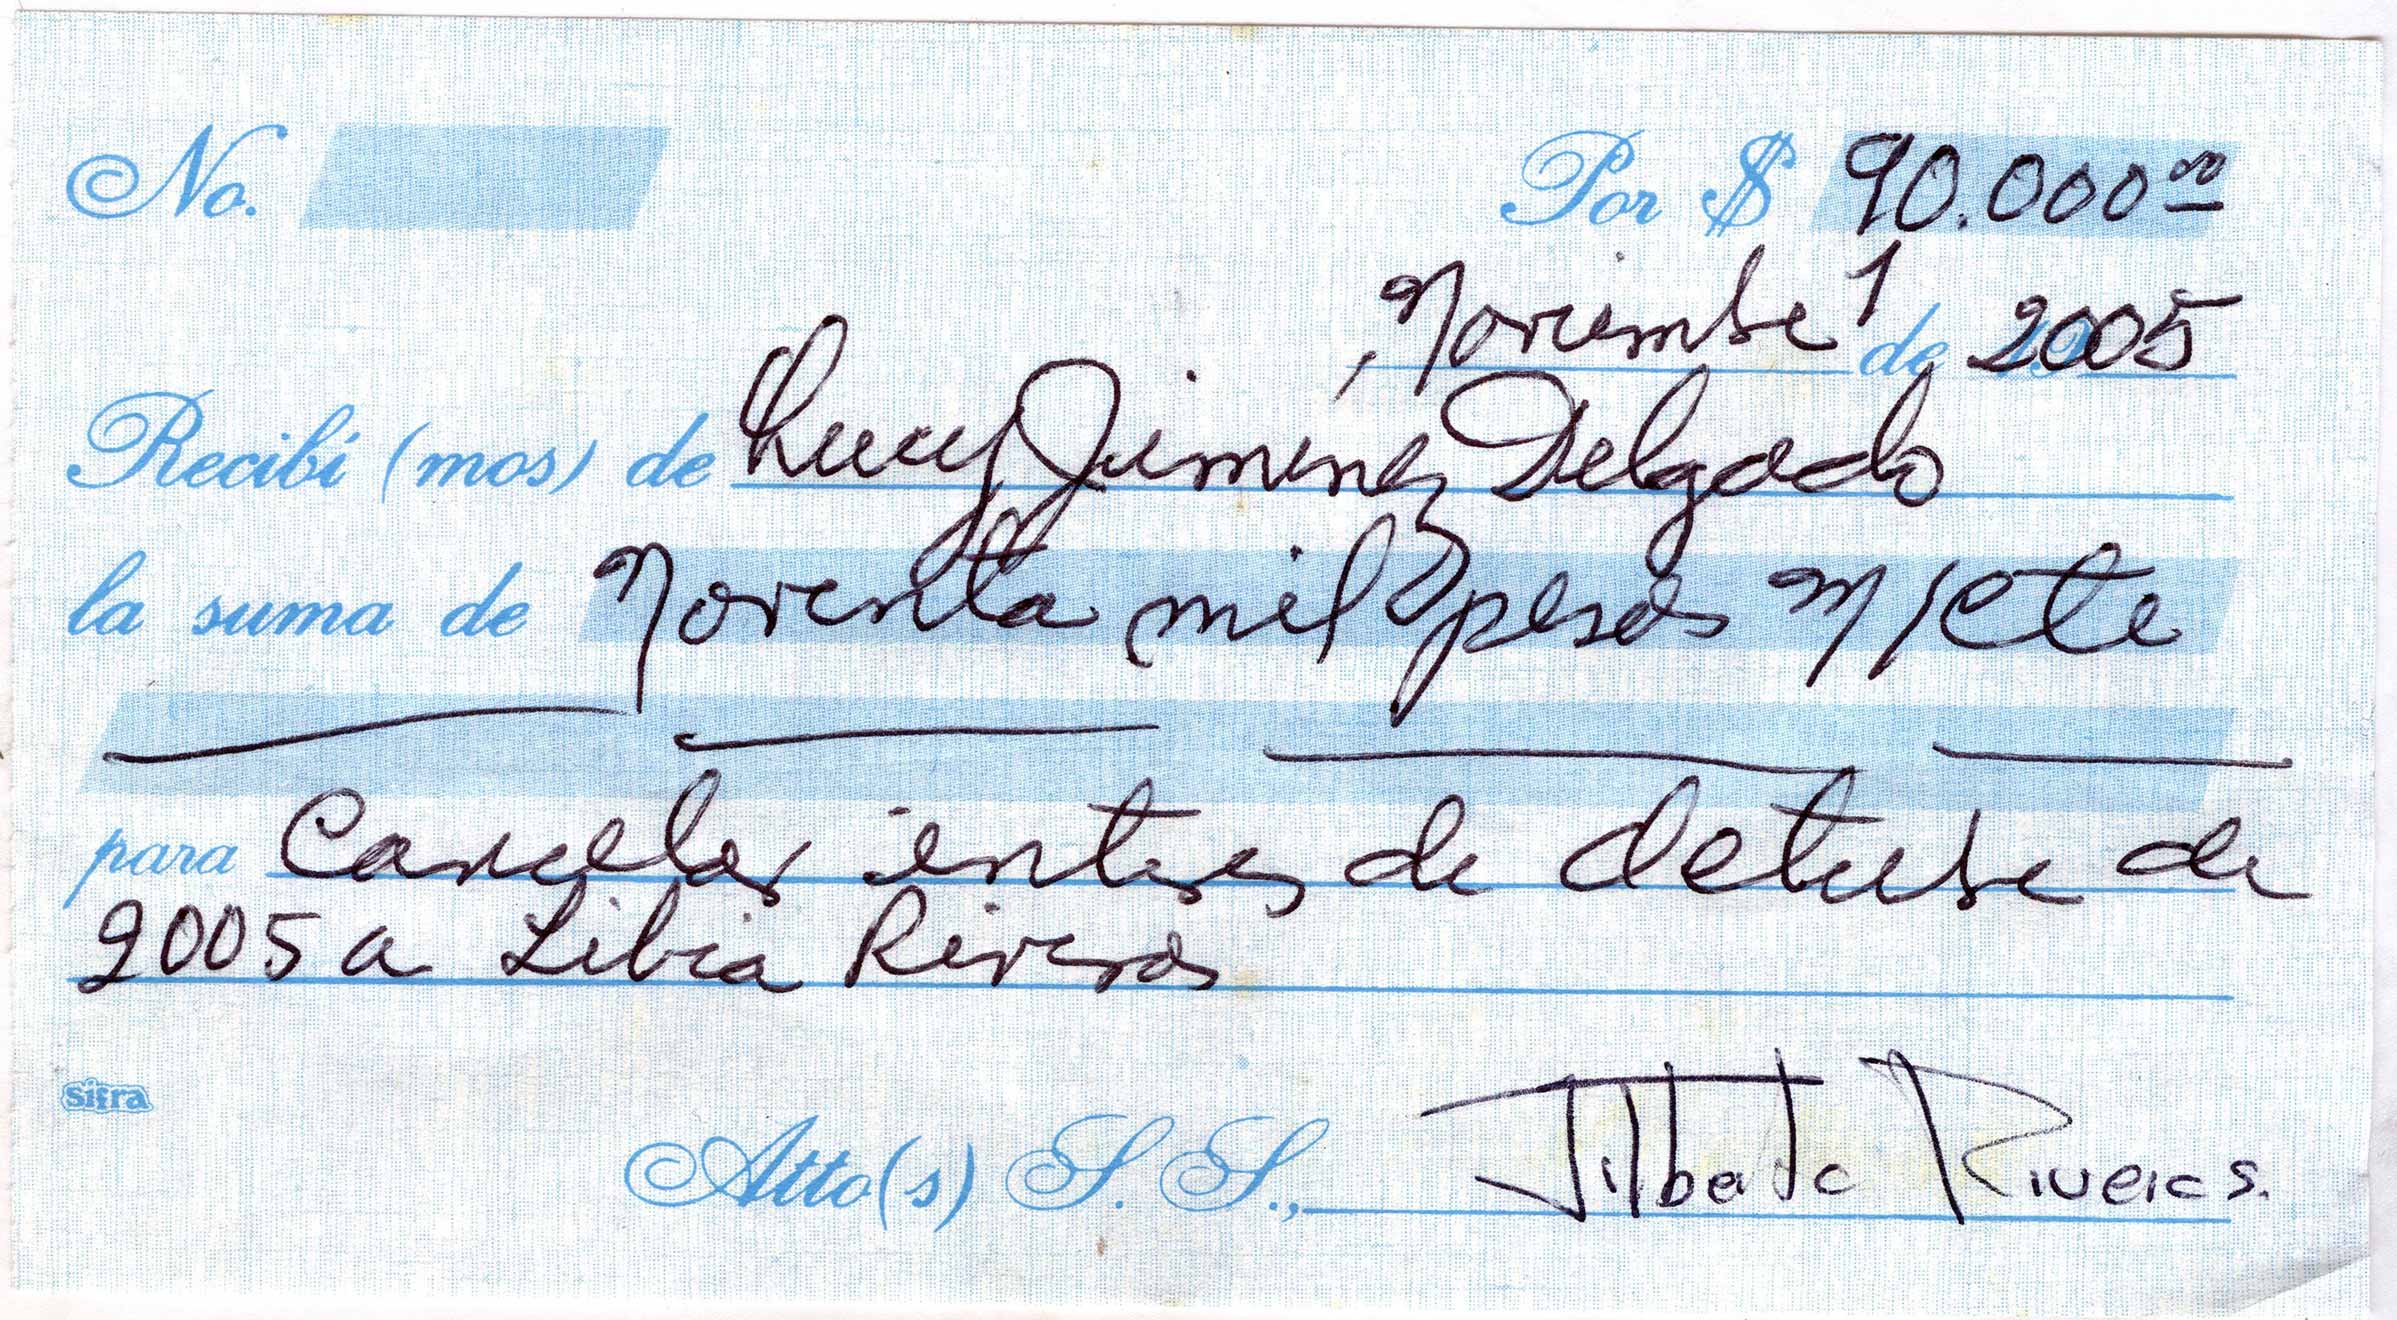 No. Por $ 90.000 00
, Noviembre 1 de 2005
Recibí (mos) de Lucy Jimenez Delgado
la suma de Noventa mil pesos m/cte
para Cancelar interes de Octubre de
2005 a Libia Riveros
Sifra
Atto(s) S. S., Jilberto Riveros.